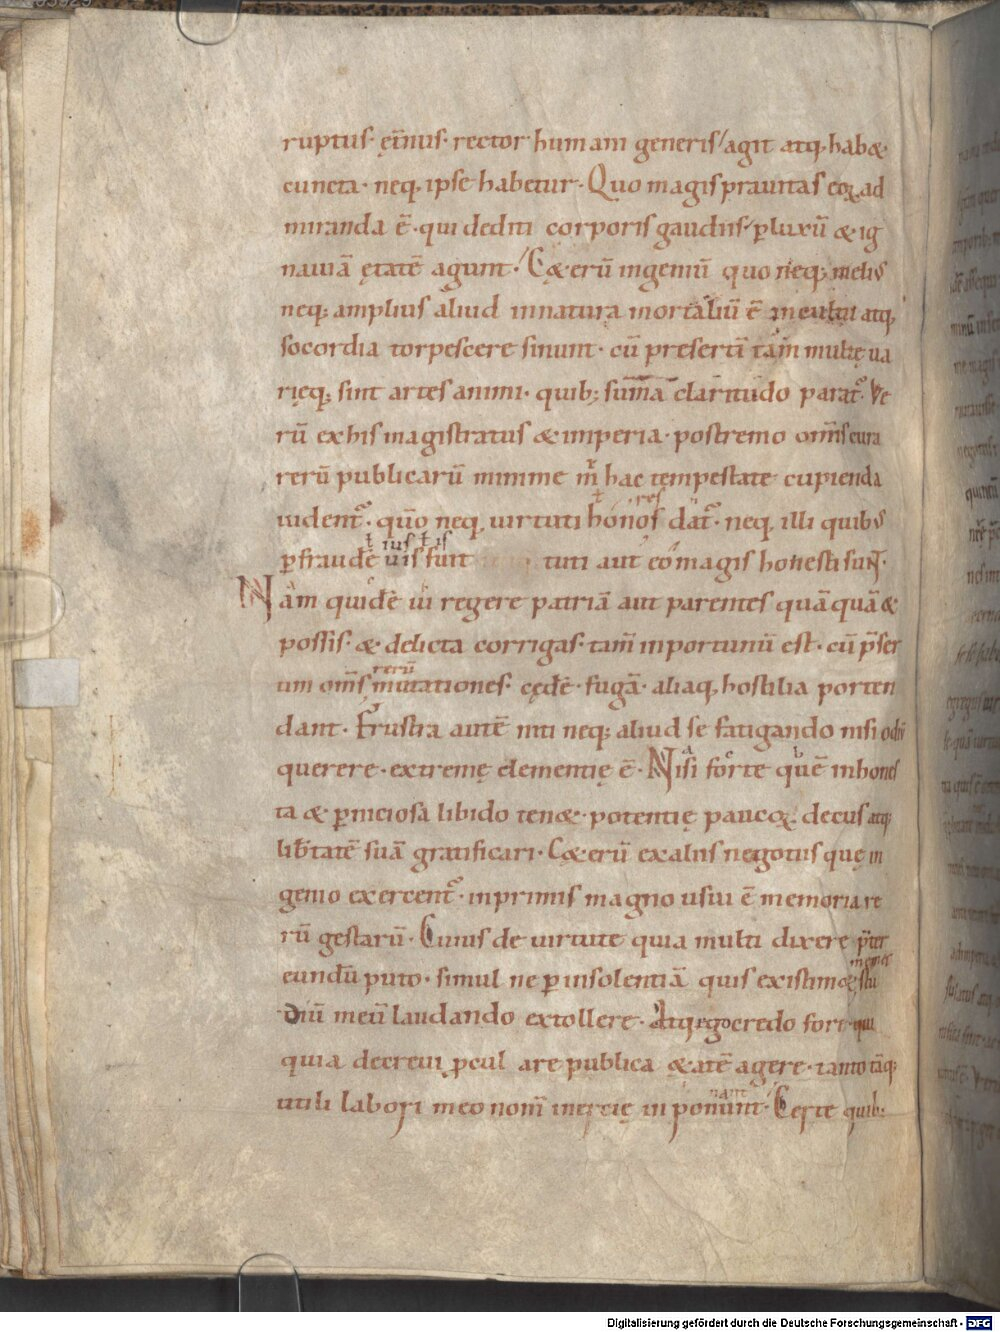 ruptus· ęt̄nus· rector humani generis/ agit atq; hab&·
cuncta· neq; ipse habetur· Quo magis prauitas eoꝝ ad
miranda ē· qui dediti corporis gaudiis/ ꝑ luxū & ig
nauiā ętatē agunt· C&erū ingeniū quo neq; melius
neq; amplius aliud in natura mortaliū ē incultu atq;
socordia torpescere sinunt· cū presertī tam̄ multę ua
rięq; sint artes animi· quib; sum̄a claritudo parat᷑· Ve
rū ex his magistratus & imperia· postremo om̄is cura
rerū publicarū minime m̄ hac tempestate cupienda
uident᷑· qūo neq; uirtuti honos dat᷑· neq; illi quibus
ꝑ fraudē uis fuit tuti aut eo magis honesti sunt·
Nam quidē ui regere patriā aut parentes quāquā &
possis· & delicta corrigas· tam̄ inportunū est· cū p̄ser
tim om̄s rerū mutationes· cędē· fugā· aliaq; hostilia porten
dant· Frustra autē niti neq; aliud se fatigando nisi odiū
querere· extremę dementię ē· Nisi forte quē inhones
ta & ꝑniciosa libido ten&· potentię paucoꝝ decus atq;
lib̄tatē suā gratificari· C&erū ex aliis negotiis quę in
genio exercent᷑· inprimis magno usui ē memoria re
rū gestarū· Cuius de uirtute quia multi dixere p̄ter
eundū puto· simul ne ꝑ insolentiā quis existim& memet stu
diū meū laudando extollere· Atq; ego credo fore qui
quia decreui ꝓcul a re publica &atē agere· tanto tāq;
utili labori meo nom̄ inertię inponunt· Certe quib;
Digitalisierung gefördert durch die Deutsche Forschungsgemeinschaft - DFG